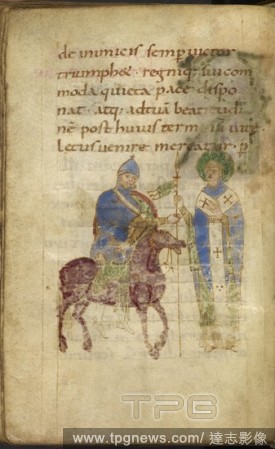 de inimicis semp victor
triumphet · regniq; sui com
moda quieta pace dispo
nat · atq; ad tuā beatitudi
nē post huius term
lectus venire mereatur · p
TPG
www.tpgnews.com / 達志影像